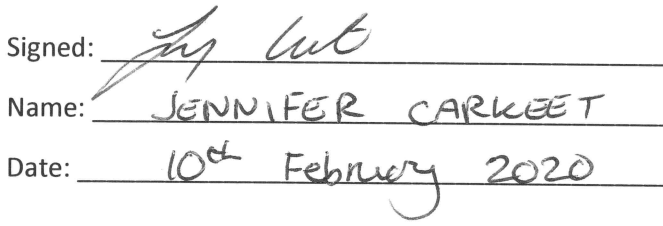 Signed:
Name: JENNIFER CARKEET
Date: 10th February 2020